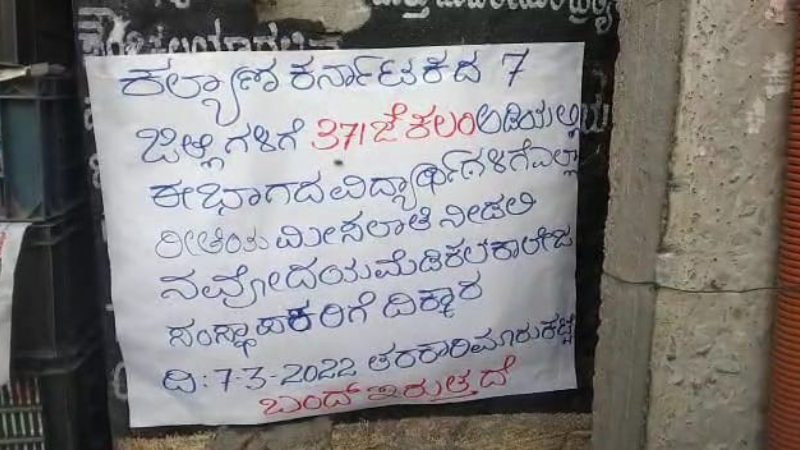 ಕಲ್ಯಾಣ ಕರ್ನಾಟಕದ 7
ಜಿಲ್ಲೆಗಳಿಗೆ 371ಜೆ ಕಲಂ ಅಡಿಯಲ್ಲಿಯ
ಈ ಭಾಗದ ವಿದ್ಯಾರ್ಥಿಗಳಿಗೆ ಎಲ್ಲಾ
ರೀತಿಯ ಮೀಸಲಾತಿ ನೀಡಲಿ
ನವೋದಯ ಮೆಡಿಕಲ ಕಾಲೇಜ
ಸಂಸ್ಥಾಪಕರಿಗೆ ದಿಕ್ಕಾರ
ದಿ: 7-3-2022 ತರಕಾರಿ ಮಾರುಕಟ್ಟೆ
ಬಂದ್ ಇರುತ್ತದೆ